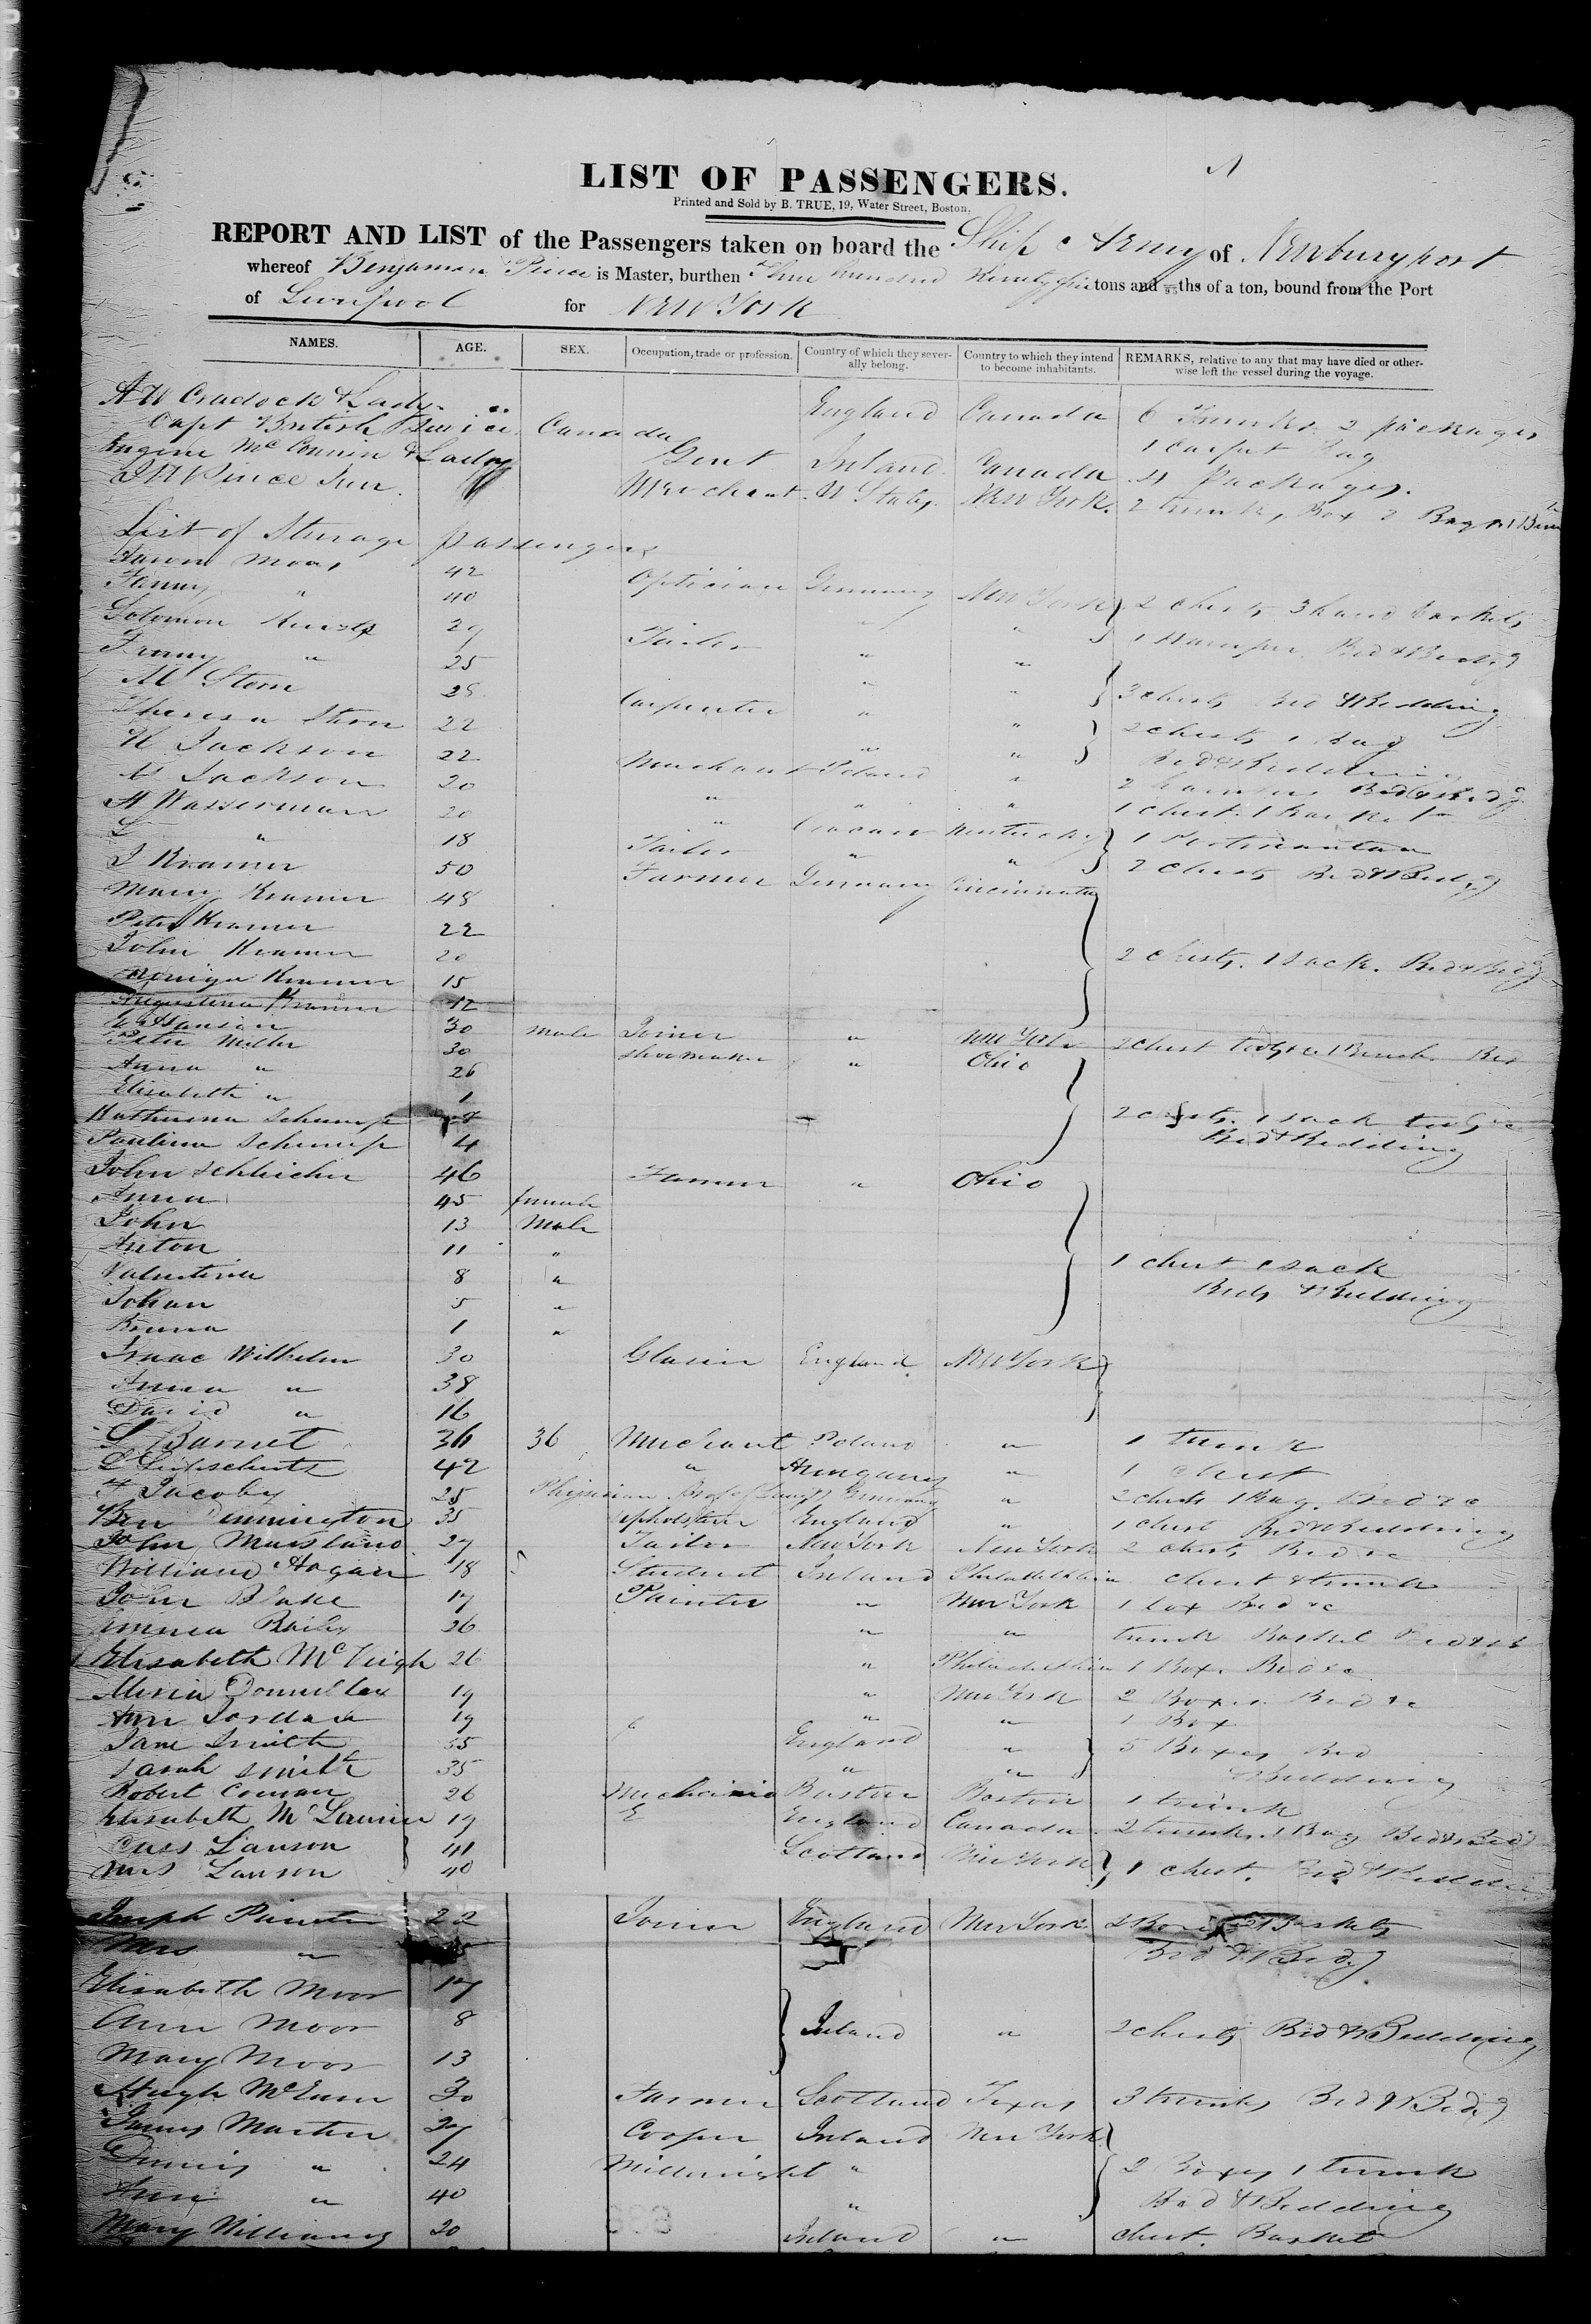 LIST OF PASSENGERS.
Printed and Sold by B. TRUE, 19, Water Street, Boston.
REPORT AND LIST of the Passengers taken on board the Ship of Newburyport
whereof Benjaman is Master, burthen hundred tons and ths of a ton, bound from the Port
of Liverpool for New York
NAMES. AGE. SEX. Occupation, trade or profession. Country of which they severally belong. Country to which they intend to become inhabitants. REMARKS, relative to any that may have died or otherwise left the vessel during the voyage.
A W Cradock & Lady England Canada 6 Trunks 2 packages
Capt British Service Canada 1 carpet Bag
Eugine & Lady Gent Ireland Canada 4 Packages.
Merchant U States New York 2 trunks, Box 2 Bags
List of Sterage passengers
42 Optician Germany New York 2 chests 3 hand baskets
Fanny " 40 " "
Solomon 29 Tailor " " 1 Hamper Bed & Bedg
" 25 " "
M Stern 28 Carpenter " " 3 chests Bed & Bedding
Theresa Stern 22 " " 2 chests 1 Bag
H Jackson 22 Merchant Poland " Bed & Bedding
Jackson 20 " " " 2 hampers Bed & Bedg
Wasserman 20 " Kentucky 1 chest. 1 Basket
" 18 Tailor " "
J Kramer 50 Farmer Germany Cincinnati 2 chests Bed & Bedg
Mary Kramer 48
Peter Kramer 22
John Kramer 20 2 chests. 1 sack. Bed & Bedg
Kramer 15
Augustina Kramer 12
Hansen 30 male Joiner " New York 2 chest tools 1 Bench Bed
Peter Miller 30 shoemaker " Ohio
Anna " 26
Elisabeth " 1
Schumpf 2 chests. 1 sack tools
Paulina Schumpf 4 Bed & Bedding
John Schleicher 46 Farmer " Ohio
Anna 45 female
John 13 Male
Anton 11 "
Valentina 8 " 1 chest sack
Johan 5 " Beds & Bedding
1 "
Isaac Wilhelm 30 Glasier England New York
Anna " 38
David " 16
S Barnet 36 36 Merchant Poland " 1 trunk
42 " Hungary " 1 chest
Jacoby 25 Physician Germany " 2 chests 1 Bag. Bed &c
Ben Pennington 35 upholsterer England " 1 chest Bed & Bedding
John Marsland 27 Tailor New York New York 2 chests Bed &c
William Hogan 18 Student Ireland Philadelphia chest & trunk
John Blake 17 Painter " New York 1 box Bed &c
Bailey 26 " " trunk Basket Bed &c
Elisabeth McVeigh 26 " Philadelphia 1 Box. Bed &c
19 " New York 2 Boxes Bed &c
Ann Jordan 19 " " 1 Box
Jane Smith 55 England " 5 Boxes Bed
Sarah Smith 35 " " & Bedding
Robert 26 Mechanic Boston Boston 1 trunk
Elisabeth 19 England Canada 2 trunks. 1 Bag Bed & Bedg
Lawson 41 Scotland New York 1 chest. Bed & Bedding
Mrs Lawson 40
Joseph Painter 22 Joiner England New York 2 Baskets
Mrs " Bed & Bedg
Elisabeth Moor 17
Ann Moor 8 Ireland " 2 chests Bed & Bedding
Mary Moor 13
Hugh 30 Farmer Scotland Texas 3 trunks Bed & Bedg
James Martin 27 Cooper Ireland New York
Dennis " 24 Millwright " 2 Boxes 1 trunk
Ann " 40 " Bed & Bedding
Mary Williams 20 Ireland " chest. Basket